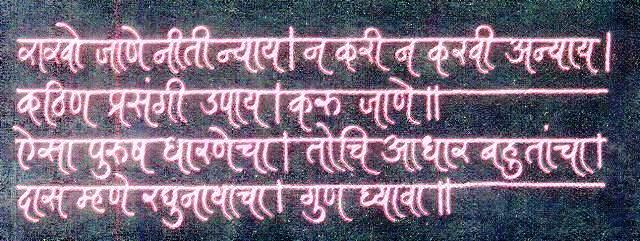 राखो जाणे नीती न्याय। न करी न करवी अन्याय।
कठिण प्रसंगी उपाय। करु जाणे॥
ऐसा पुरुष धारणेचा। तोचि आधार बहुतांचा।
दास म्हणे रघुनाथाचा। गुण घ्यावा॥